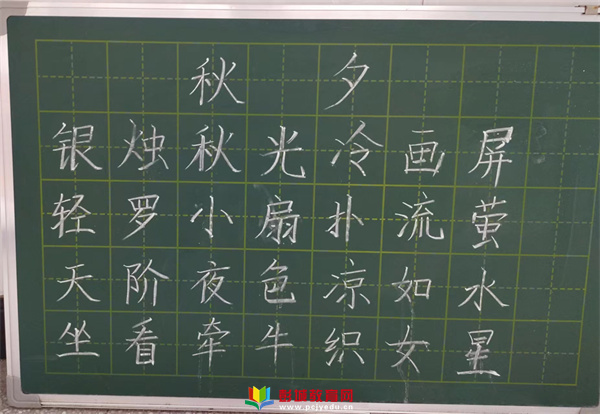 秋夕
银烛秋光冷画屏
轻罗小扇扑流萤
天阶夜色凉如水
坐看牵牛织女星
彭城教育网
www.pcjyedu.cn